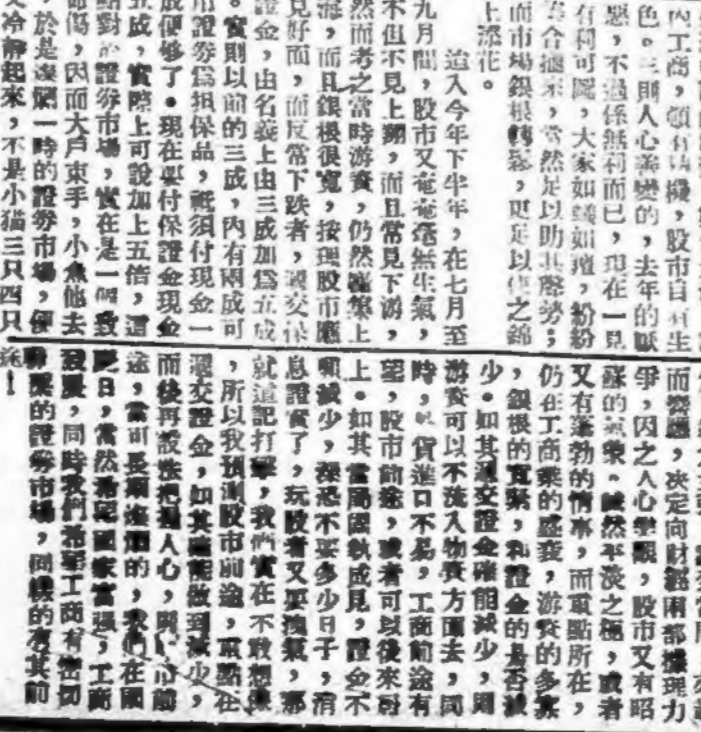 內工商,頗有,股市自有生
色。三則人心善變的,去年的厭
惡,不過係無利而已,現在一見
有利可圖,大家如蟻如羶,紛紛
合攏來,當然足以助其聲勢;
而市場銀根轉鬆,更足以使之錦
上添花。
迨入今年下半年,在七月至
九月間,股市又奄奄毫無生氣,
不但不見上翔,而且常見下游,
然而考之當時游資,仍然匯集上
海,而且銀根很寬,按理股市應
見好而,而反常下跌者,遞交保
證金,由名義上由三成加爲五成
。實則以前的三成,內有兩成可
用證券爲担保品,祇須付現金一
成便够了。現在要付保證金現金
五成,實際上可說加上五倍,這
點對於證券市場,實在是一個致
命傷,因而大戶束手,小魚他去
,於是一時的證券市場,便
又冷靜起來,不是小猫三只四只
而響應,決定向財經兩部據理力
爭,因之人心樂觀,股市又有昭
蘇的氣象。誠然平淡之極,或者
又有蓬勃的情事,而重點所在,
仍在工商業的盛衰,游資的多寡
,銀根的寬緊,和證金的是否減
少。如其遞交證金確能減少,則
游資可以不流入物資方面去,同
時,貨進口不易,工商前途有
望,股市前途,或者可以後來居
上。如其當局固執成見,證金不
願減少,深恐不要多少日子,消
息證實了,玩股者又要洩氣,那
就這記打擊,我們實在不敢想像
,所以我預測股市前途,重點在
遞交證金,如其能做到減少,
而後再設法把握人心,股市前
途,當可長期進展的,我們在國
慶日,當然希望國家富強,工商
發展,同時我們希望工商有密切
聯繫的證券市場,同樣的有其前
途!